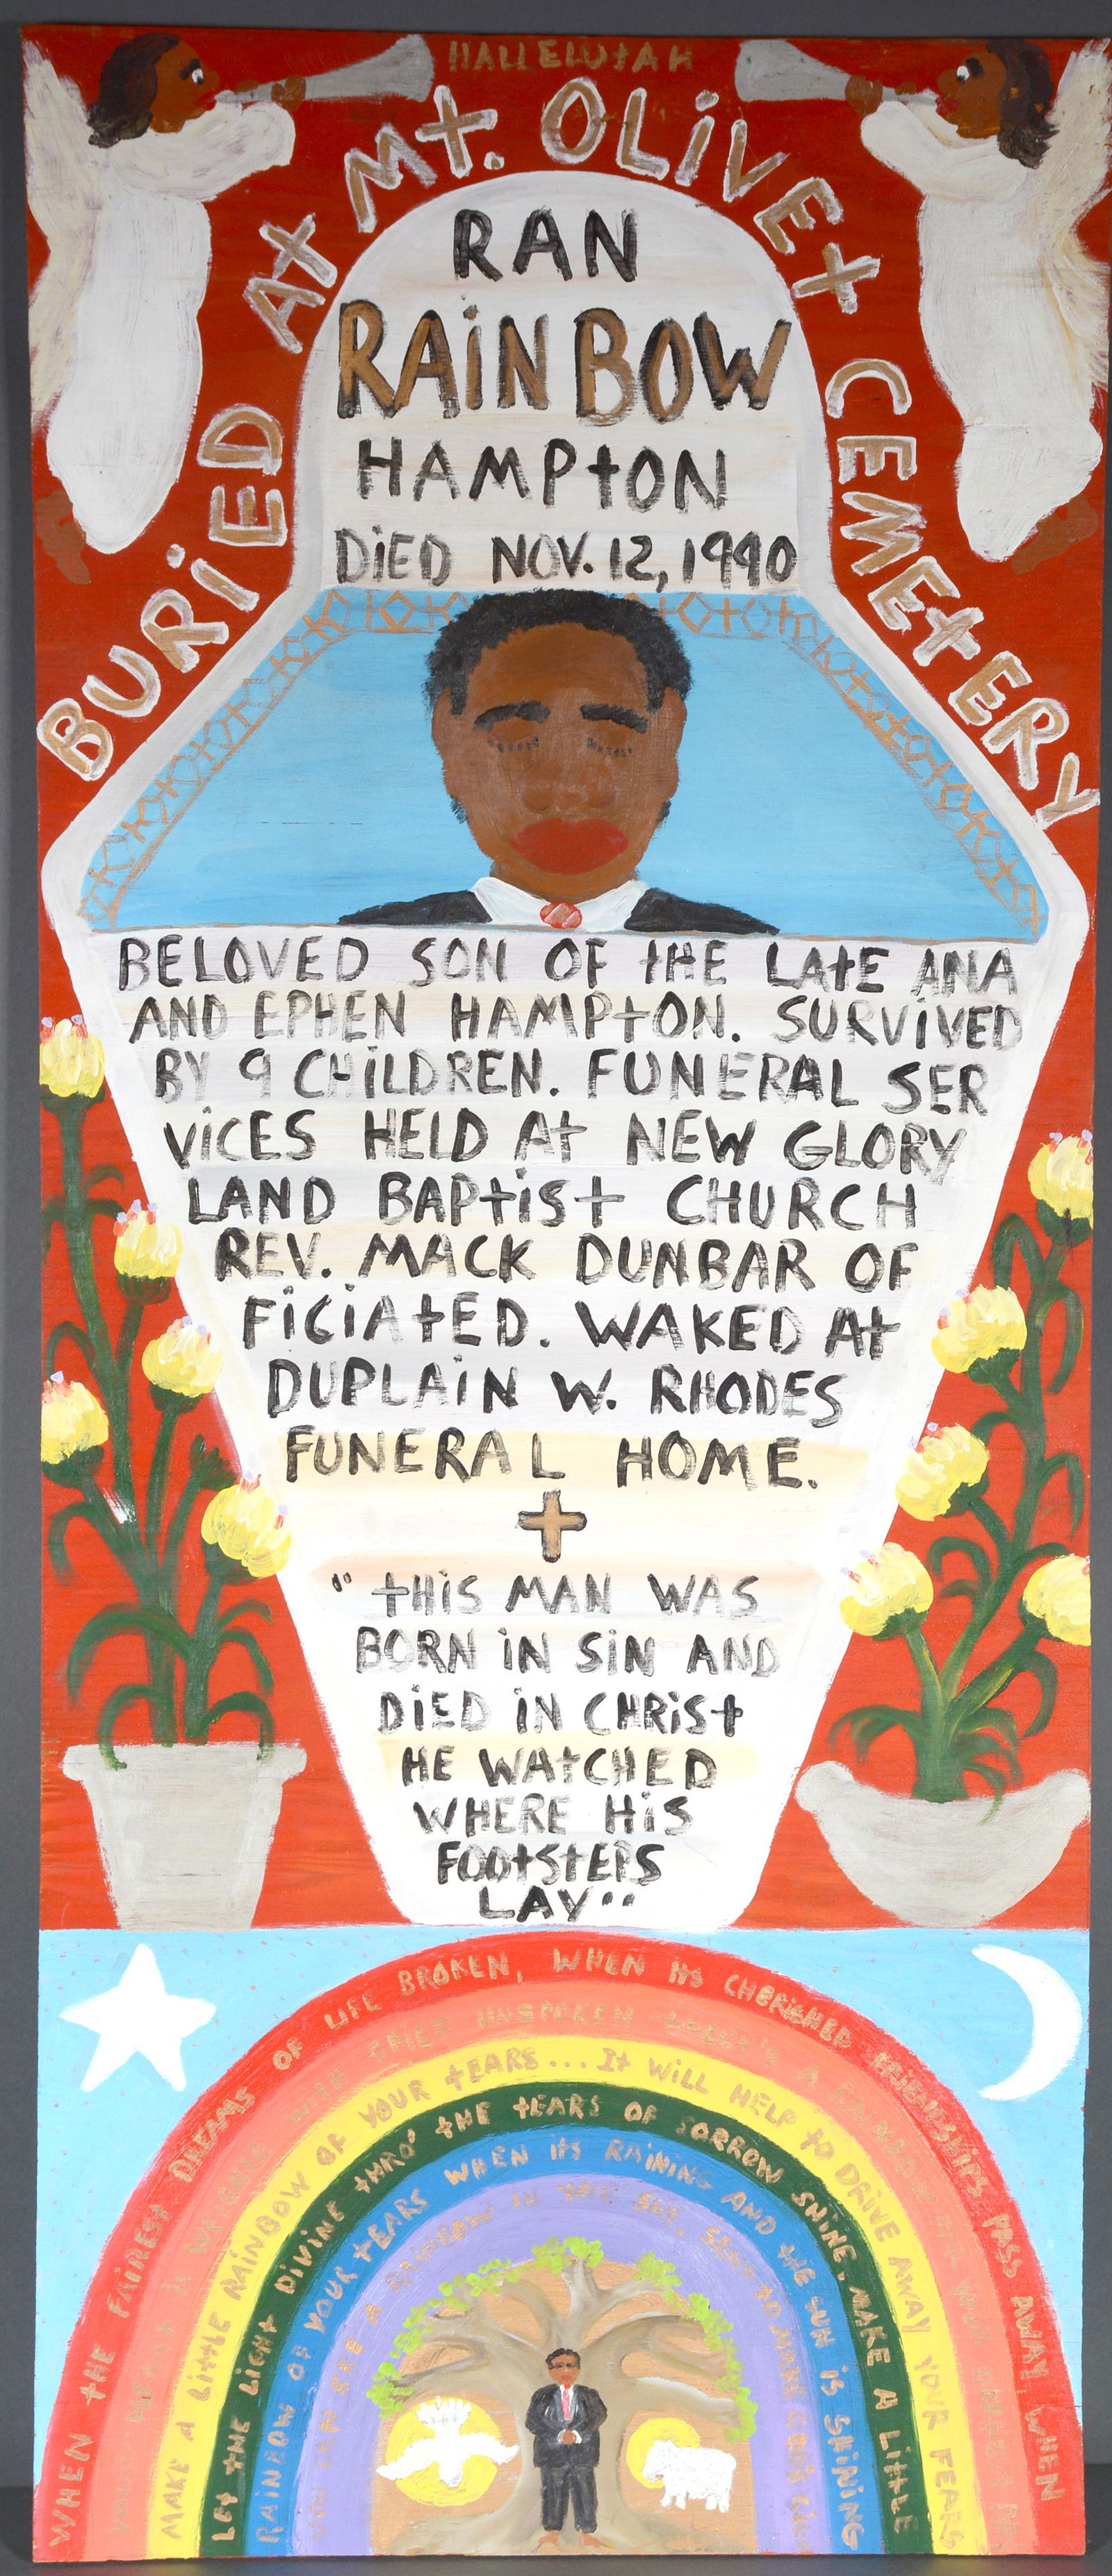 HALLELUJAH
BURiED At Mt. OLiVEt CEMEtERY
RAN
RAiNBOW
HAMPtON
DiED NOV. 12, 1990
BELOVED SON OF tHE LAtE ANA
AND EPHEN HAMPtON. SURViVED
BY 9 CHiLDREN. FUNERAL SER
ViCES HELD At NEW GLORY
LAND BAPtiSt CHURCH
REV. MACK DUNBAR OF
FiCiAtED. WAKED At
DUPLAiN W. RHODES
FUNERAL HOME.
"tHiS MAN WAS
BORN iN SiN AND
DiED iN CHRiSt
HE WAtCHED
WHERE HiS
FOOtStEPS
LAY"
WHEN tHE FAiRESt DREAMS OF LiFE BROKEN, WHEN itS CHERiSHED FRiENDSHiPS PASS AWAY, WHEN
UNSPOKEN
MAKE A LittLE RAiNBOW OF YOUR tEARS... It WiLL HELP tO DRiVE AWAY YOUR FEARS
LEt tHE LiGHt DiViNE tHRO' tHE tEARS OF SORROW SHiNE, MAKE A LittLE
RAiNBOW OF YOUR tEARS WHEN itS RAiNiNG AND tHE SUN iS SHiNiNG
YOU CAN SEE A RAiNBOW iN tHE SKY, SENt tO MAKE GOD'S